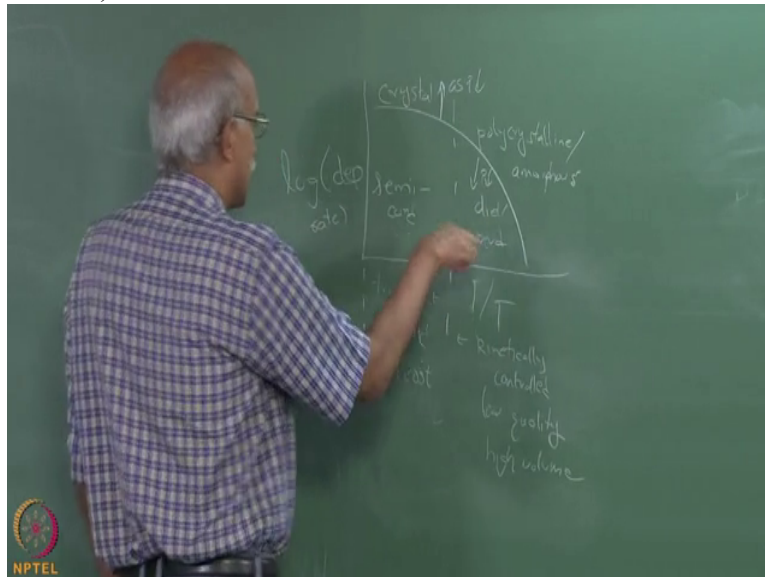 crystal
polycrystalline/
amorphous
log(dep
rate)
semi-
cond
diel/
cond
1/T
kinetically
controlled
low quality
high volume
cost
NPTEL